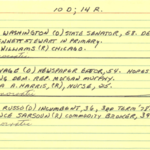 10 D; 14 R.
WASHINGTON (D) STATE SENATOR, 58. DE
BENNETT STEWART IN PRIMARY.
WILLIAMS (R) CHICAGO.
SAVAGE (D) NEWSPAPER EDITOR, 54. HOPES
DEM. REP. MORGAN MURPHY.
A. HARRIS, (R), NURSE, 55.
RUSSO (D) INCUMBENT, 36, 3RD TERM '78
SARSOON (R) COMMODITY BROKER, 39